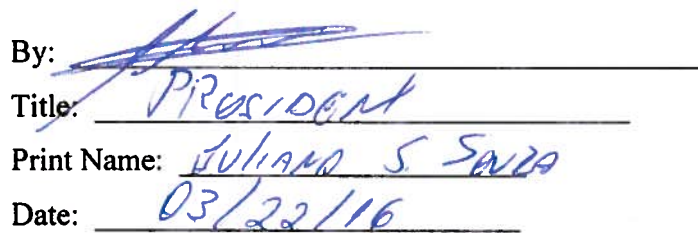 By:
Title: PRESIDENT
Print Name: JULIANA S. SOUZA
Date: 03/22/16